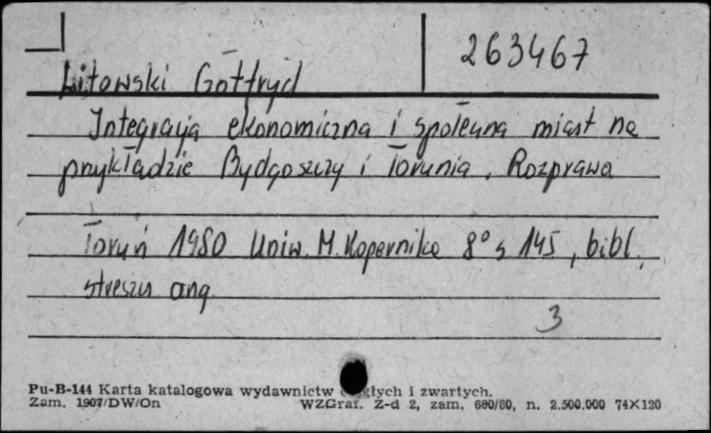 263467
Litowski Gotfryd
Integracja ekonomiczna i społeczna miast na
przykładzie Bydgoszczy i Torunia. Rozprawa
Toruń 1980 Uniw. M. Kopernika 8° s 145, bibl.,
streszcz ang
3
Pu-B-144 Karta katalogowa wydawnictw ciągłych i zwartych.
Zam. 1907/DW/On WZGraf. Z-d 2, zam. 680/80, n. 2.500.000 74×120